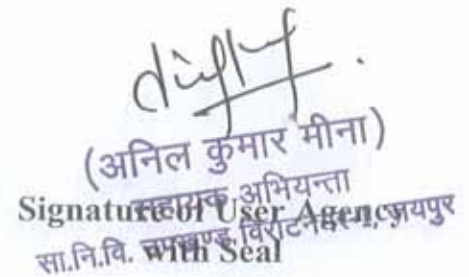 (अनिल कुमार मीना)
सहायक अभियन्ता
Signature of User Agency
सा.नि.वि. उपखण्ड विराटनगर, जयपुर
with Seal